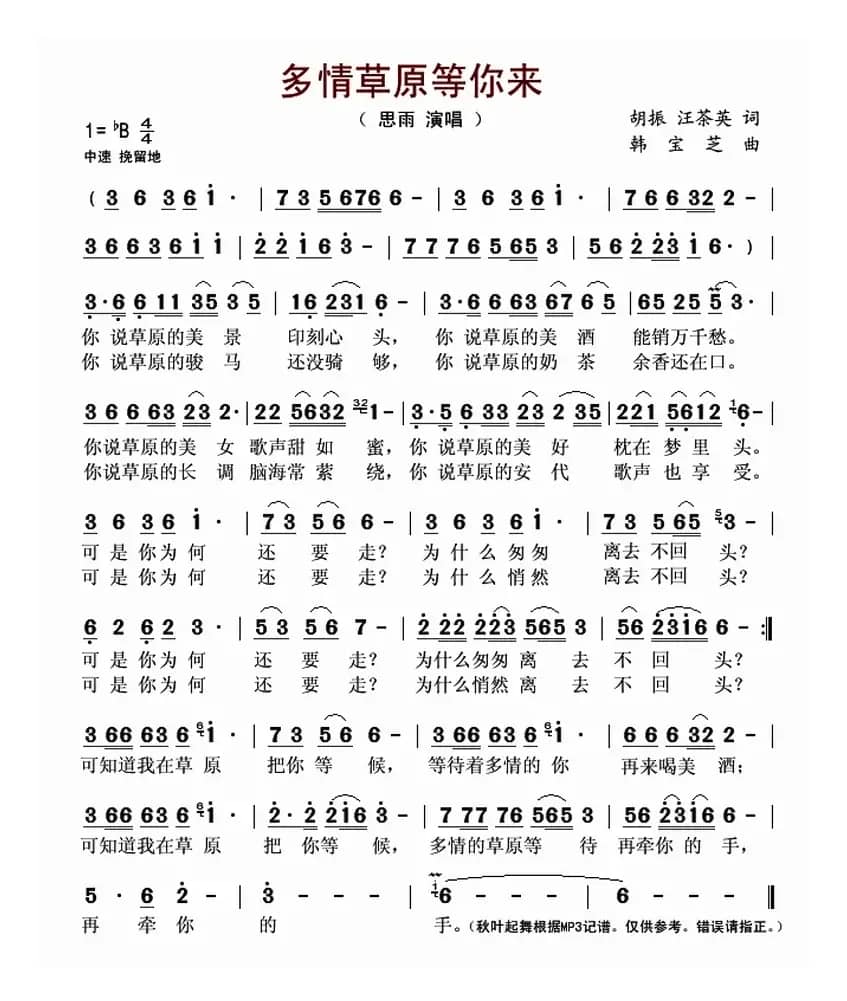 多情草原等你来
（ 思雨 演唱 ）
胡振 汪茶英 词
韩 宝 芝 曲
1=♭B 4/4
中速 挽留地
（ 3 6 3 6 i · | 7 3 5 6 7 6 6 - | 3 6 3 6 i · | 7 6 6 3 2 2 - |
3 6 6 3 6 i i | 2 2 i 6 3 - | 7 7 7 6 5 6 5 3 | 5 6 2 2 3 i 6 · ） |
3 · 6 6 1 1 3 5 3 5 | 1 6 2 3 1 6 - | 3 · 6 6 6 3 6 7 6 5 | 6 5 2 5 5 3 · |
你 说草原的美 景 印刻心 头， 你 说草原的美 酒 能销万千愁。
你 说草原的骏 马 还没骑 够， 你 说草原的奶 茶 余香还在口。
3 6 6 6 3 2 3 2 · | 2 2 5 6 3 2 32 1 - | 3 · 5 6 3 3 2 3 2 3 5 | 2 2 1 5 6 1 2 1 6 - |
你说草原的美 女 歌声甜 如 蜜，你 说草原的美 好 枕在 梦 里 头。
你说草原的长 调 脑海常 萦 绕，你 说草原的安 代 歌声 也 享 受。
3 6 3 6 i · | 7 3 5 6 6 - | 3 6 3 6 i · | 7 3 5 6 5 5 3 - |
可 是 你为 何 还 要 走？ 为 什 么 匆匆 离去 不回 头？
可 是 你为 何 还 要 走？ 为 什 么 悄然 离去 不回 头？
6 2 6 2 3 · | 5 3 5 6 7 - | 2 2 2 2 2 3 5 6 5 3 | 5 6 2 3 i 6 6 - :‖
可 是 你为 何 还 要 走？ 为什么匆匆 离 去 不 回 头？
可 是 你为 何 还 要 走？ 为什么悄然 离 去 不 回 头？
3 6 6 6 3 6 6 i · | 7 3 5 6 6 - | 3 6 6 6 3 6 6 i · | 6 6 6 3 2 2 - |
可知道我在草 原 把你 等 候， 等待着多情的 你 再来喝美 酒；
3 6 6 6 3 6 6 i · | 2 · 2 2 i 6 3 - | 7 7 7 7 6 5 6 5 3 | 5 6 2 3 i 6 6 - |
可知道我在草 原 把 你等 候， 多情的草原等 待 再牵你 的 手，
5 · 6 2 - | 3 - - - | i 6 - - - | 6 - - - ‖
再 牵 你 的 手。（秋叶起舞根据MP3记谱。仅供参考。错误请指正。）